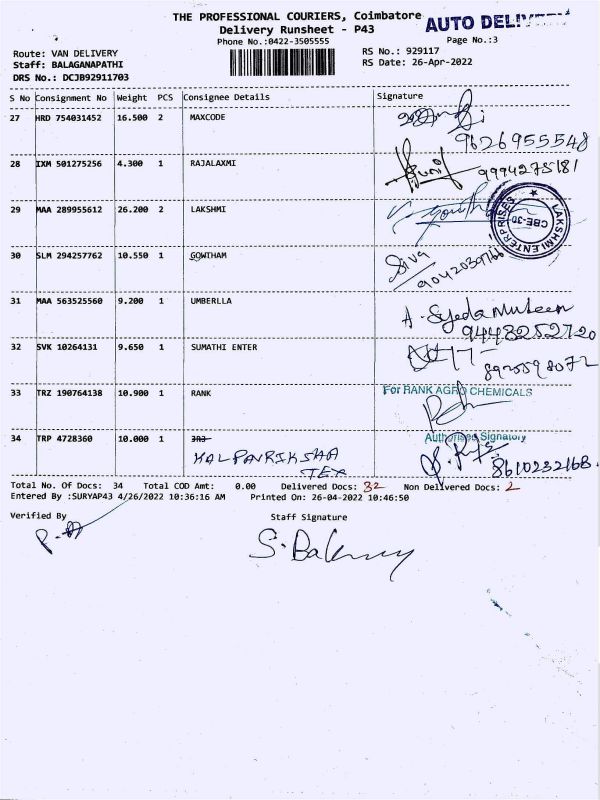 THE PROFESSIONAL COURIERS, Coimbatore
AUTO DELIVERY
Delivery Runsheet - P43
Phone No.:0422-3505555
Page No.:3
Route: VAN DELIVERY
RS No.: 929117
Staff: BALAGANAPATHI
RS Date: 26-Apr-2022
DRS No.: DCJB92911703
S No Consignment No Weight PCS Consignee Details Signature
27 HRD 754031452 16.500 2 MAXCODE
9626955548
28 IXM 501275256 4.300 1 RAJALAXMI
9994275181
29 MAA 289955612 26.200 2 LAKSHMI
LAKSHMI ENTERPRISES
CBE-30
30 SLM 294257762 10.550 1 GOWTHAM Siva
9042039766
31 MAA 563525560 9.200 1 UMBERLLA A. Syeda Muteen
9448252720
32 SVK 10264131 9.650 1 SUMATHI ENTER
8925598072
33 TRZ 190764138 10.900 1 RANK For RANK AGRO CHEMICALS
Authorised Signatory
34 TRP 4728360 10.000 1 3N3
KALPAVRIKSHA
TEX
8610232168.
Total No. Of Docs: 34 Total COD Amt: 0.00 Delivered Docs: 32 Non Delivered Docs: 2
Entered By :SURYAP43 4/26/2022 10:36:16 AM Printed On: 26-04-2022 10:46:50
Verified By Staff Signature